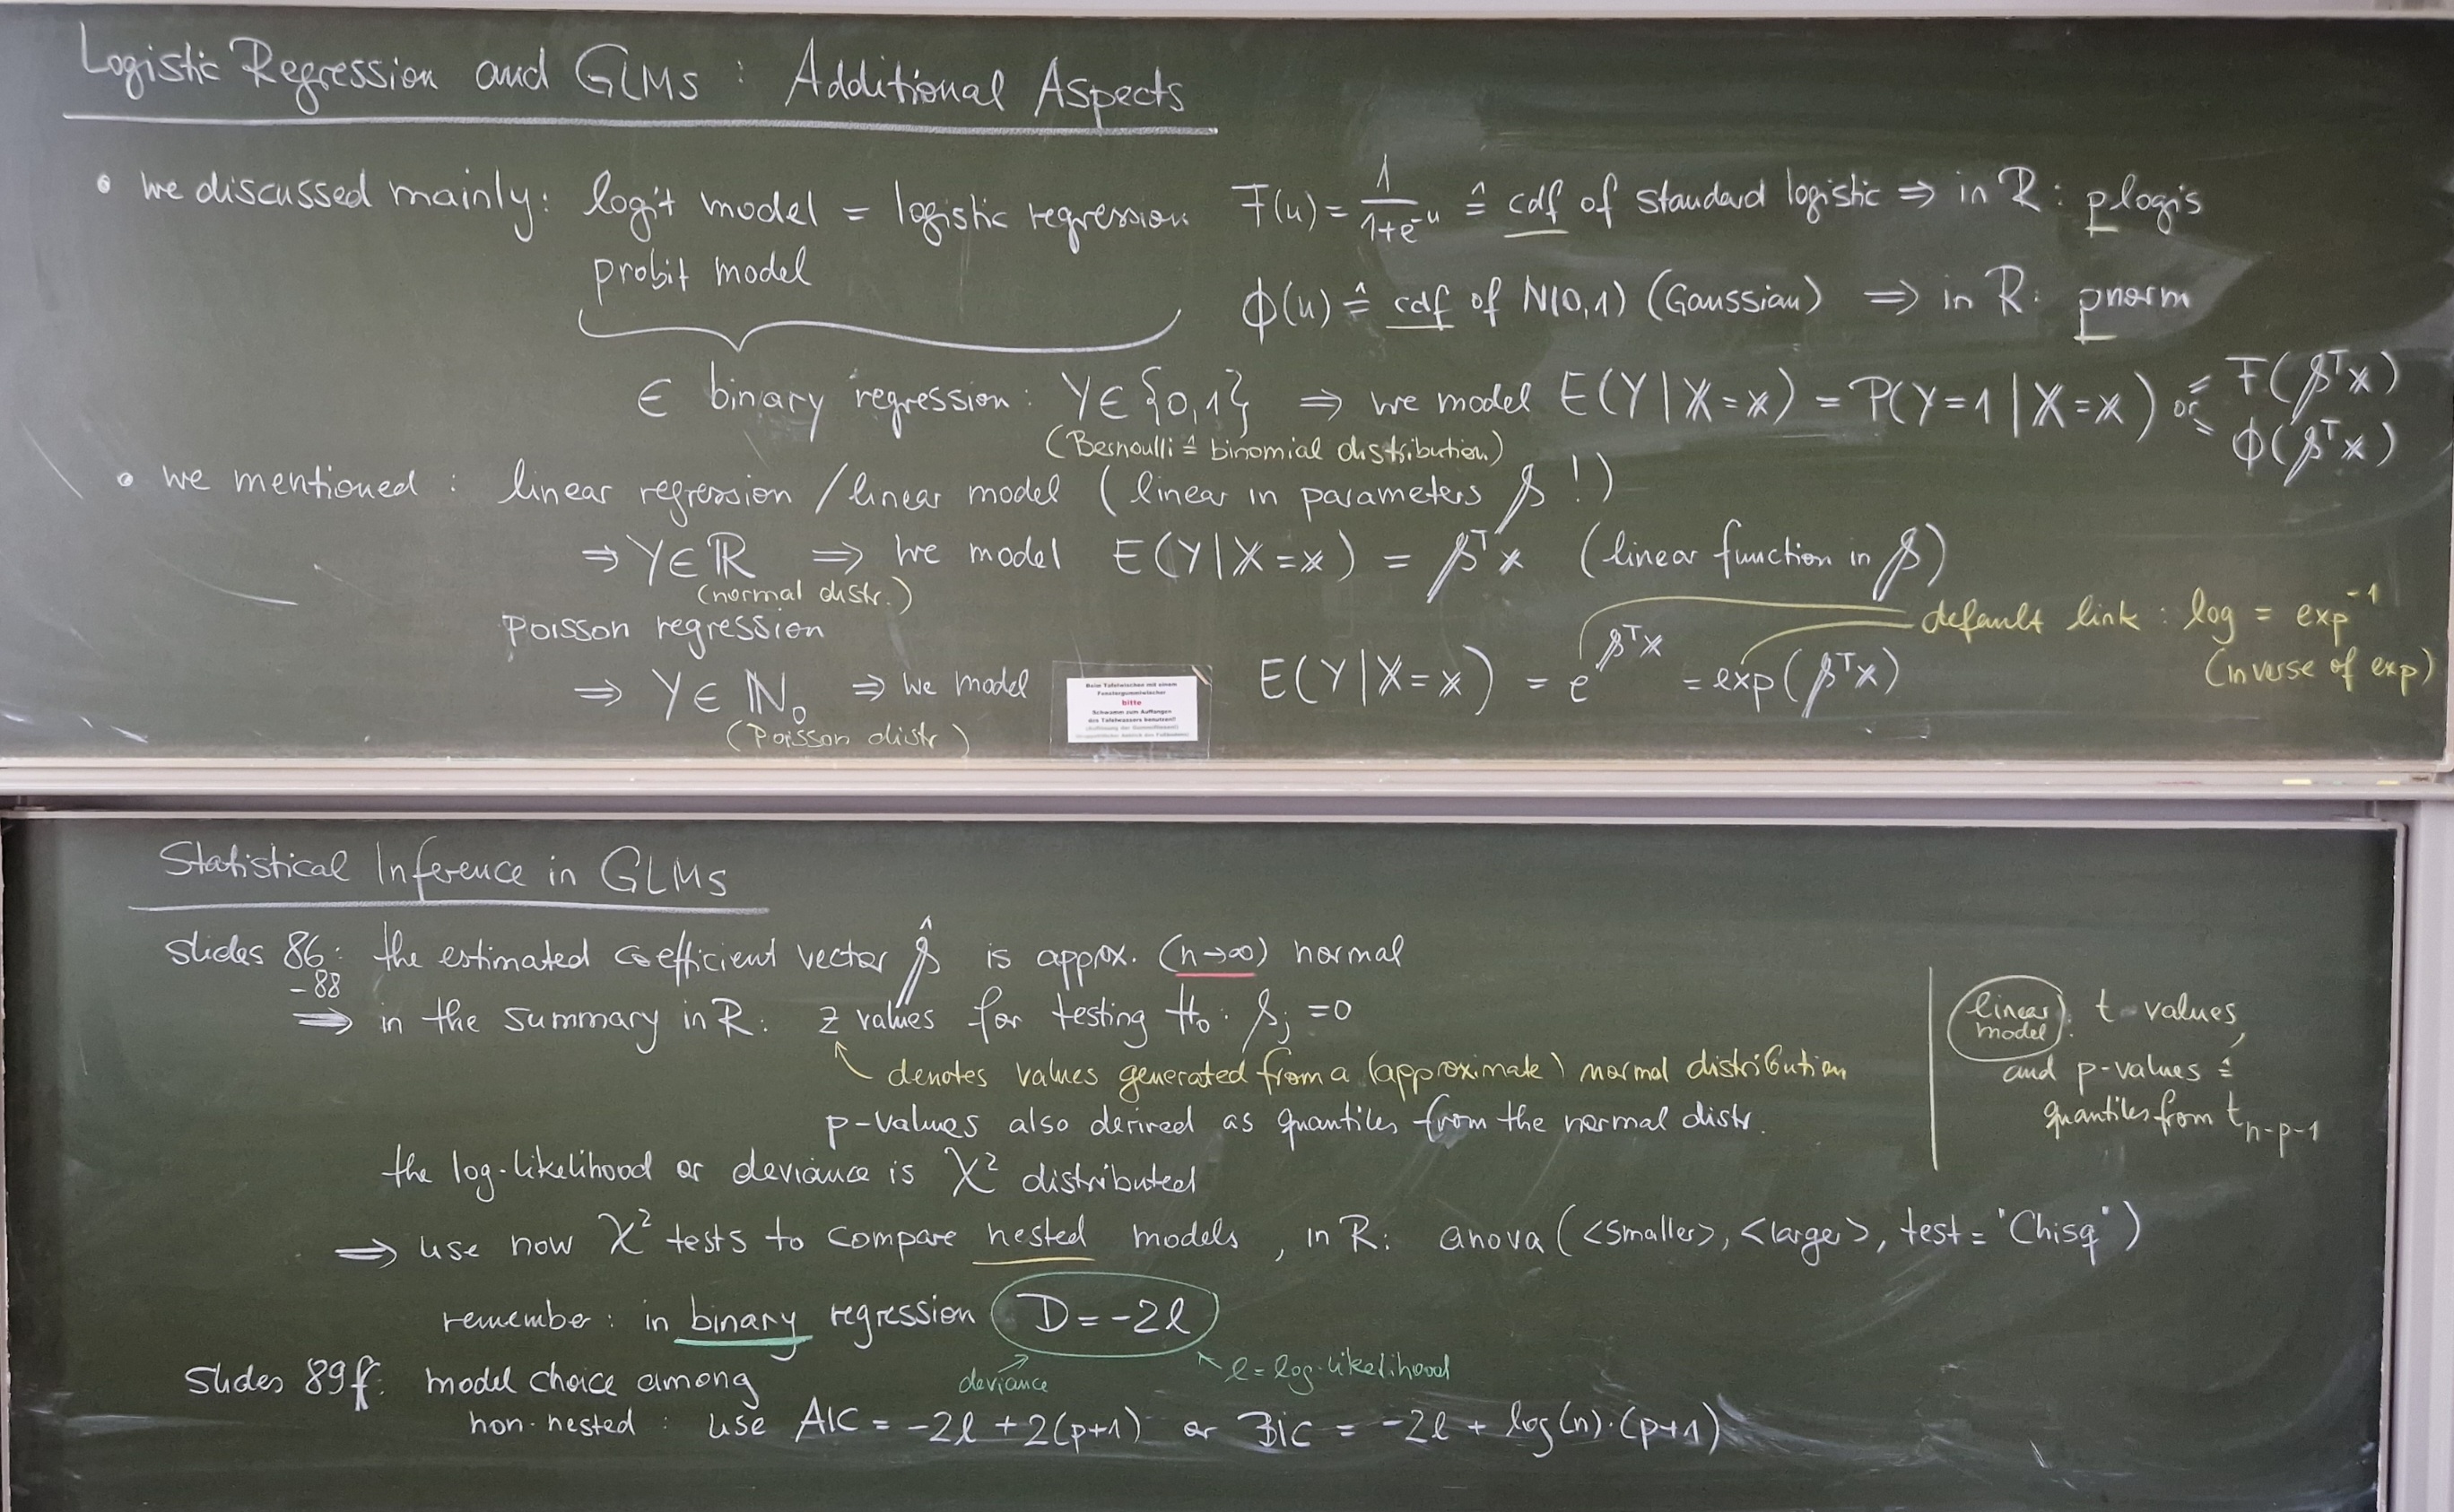 Logistic Regression and GLMs : Additional Aspects
• we discussed mainly: logit model = logistic regression F(u) = 1/(1+e^-u) ≙ cdf of standard logistic ⇒ in R: plogis
probit model ϕ(u) ≙ cdf of N(0,1) (Gaussian) ⇒ in R: pnorm
∈ binary regression: Y∈{0,1} ⇒ we model E(Y|X=x) = P(Y=1|X=x) = F(β^T x) or = ϕ(β^T x)
(Bernoulli ≙ binomial distribution)
• we mentioned : linear regression / linear model (linear in parameters β !)
⇒ Y∈ℝ ⇒ we model E(Y|X=x) = β^T x (linear function in β)
(normal distr.)
Poisson regression
default link : log = exp^-1
(inverse of exp)
⇒ Y∈ℕ₀ ⇒ we model E(Y|X=x) = e^(β^T x) = exp(β^T x)
(Poisson distr)
Beim Tafelwischen mit einem
Fenstergummiwischer
bitte
Schwamm zum Auffangen
des Tafelwassers benutzen!!
Statistical Inference in GLMs
slides 86: the estimated coefficient vector β̂ is approx. (n→∞) normal
-88
⇒ in the summary in R: z values for testing H₀: βⱼ = 0
denotes values generated from a (approximate) normal distribution
p-values also derived as quantiles from the normal distr.
linear model: t-values,
and p-values ≙
quantiles from t_n-p-1
the log-likelihood or deviance is χ² distributed
⇒ use now χ² tests to compare nested models, in R: anova(<smaller>, <larger>, test="Chisq")
remember: in binary regression D = -2ℓ
deviance ℓ = log-likelihood
Slides 89ff: model choice among
non-nested : use AIC = -2ℓ + 2(p+1) or BIC = -2ℓ + log(n)·(p+1)